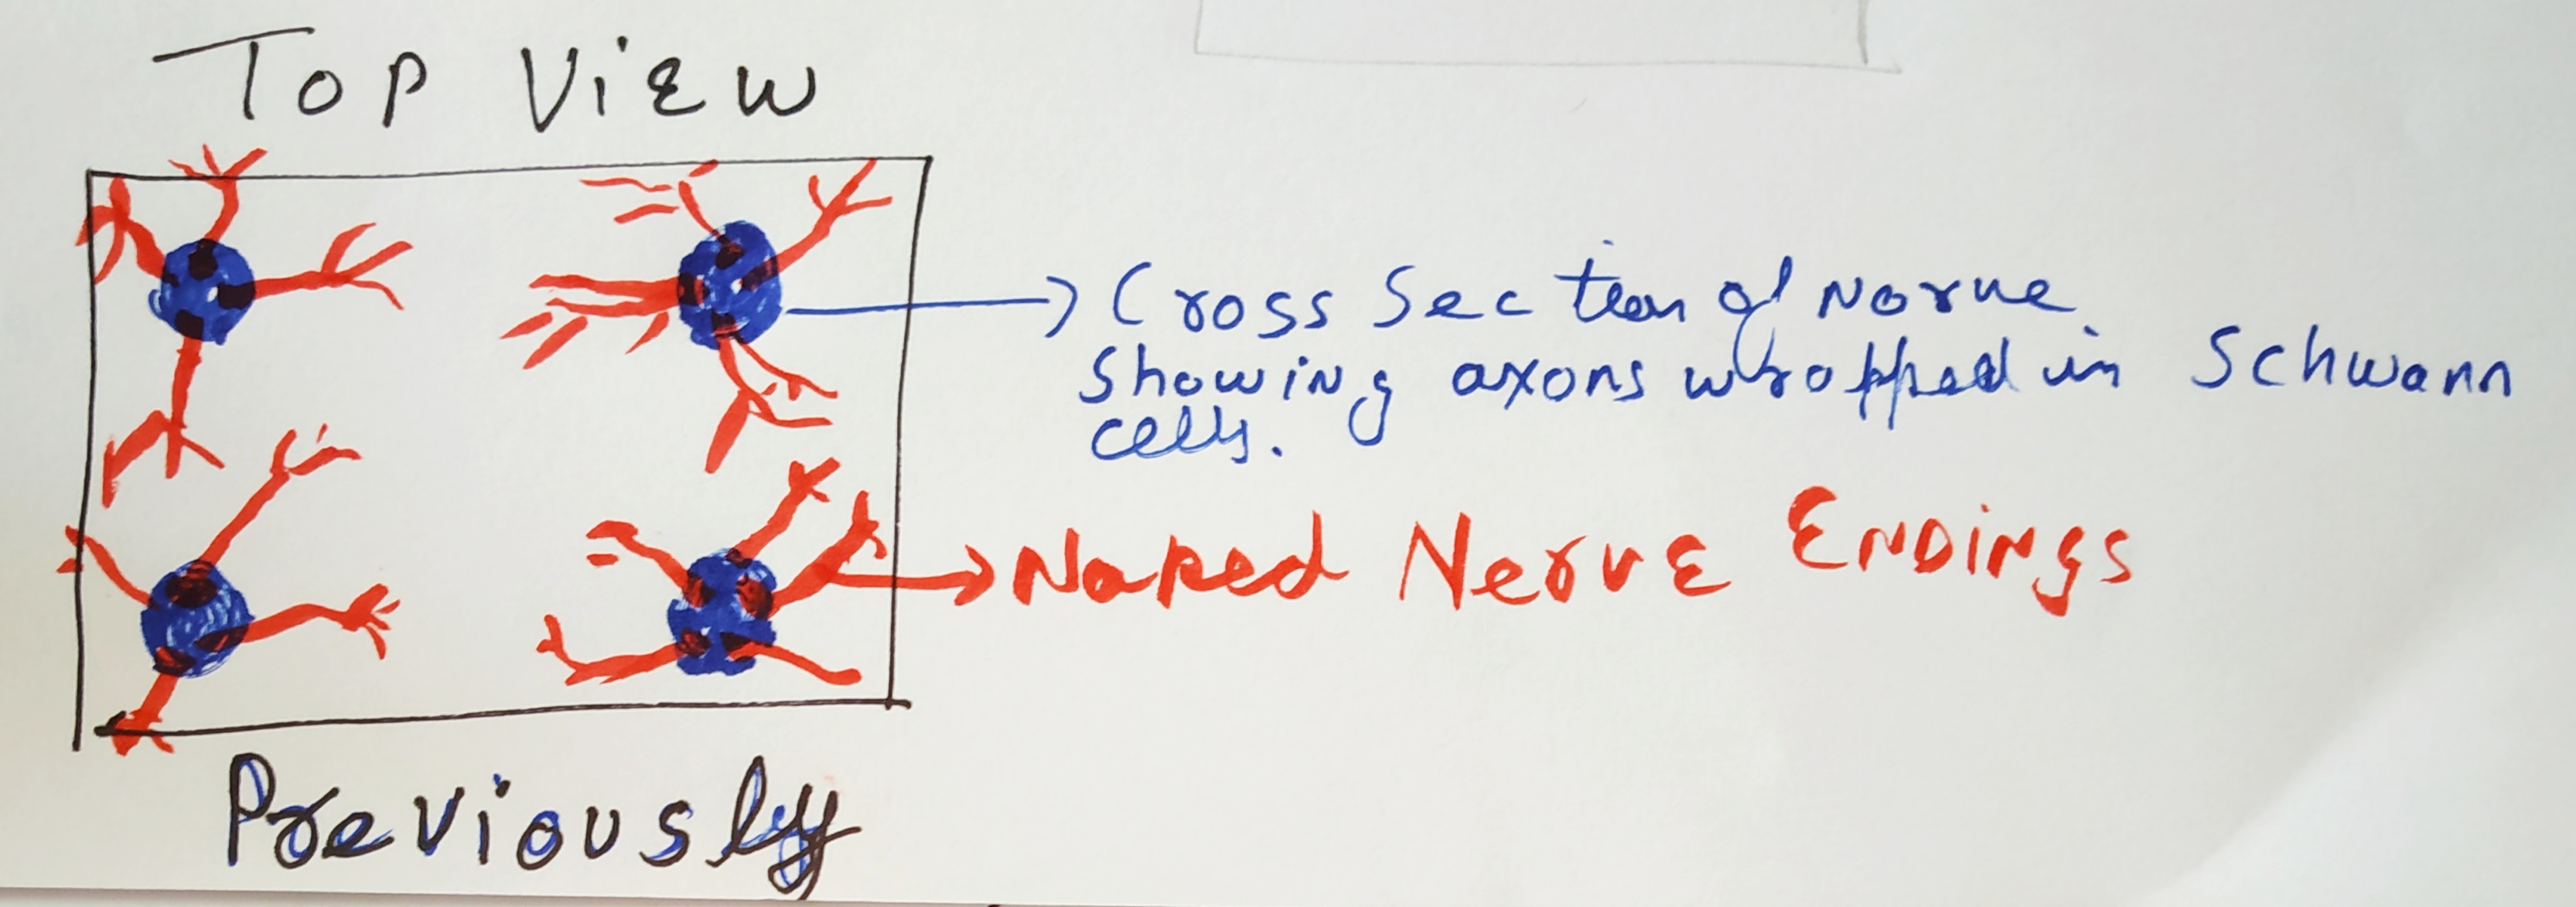 Top View
Cross Section of Nerve
Showing axons wrapped in Schwann
cells.
Naked Nerve Endings
Previously